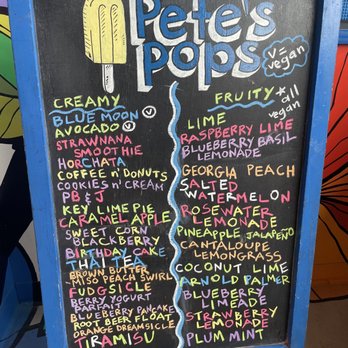 Pete's
pops
v=
vegan
CREAMY
BLUE MOON v
AVOCADO v
STRAWNANA
SMOOTHIE
HORCHATA
COFFEE n' DONUTS
COOKIES n' CREAM
PB & J
KEY LIME PIE
CARAMEL APPLE
SWEET CORN
BLACKBERRY
BIRTHDAY CAKE
THAI TEA
BROWN BUTTER
MISO PEACH SWIRL
FUDGSICLE
BERRY YOGURT
PARFAIT
BLUEBERRY PANCAKE
ROOT BEER FLOAT
ORANGE DREAMSICLE
TIRAMISU
FRUITY * all
vegan
LIME
RASPBERRY LIME
BLUEBERRY BASIL
LEMONADE
GEORGIA PEACH
SALTED
WATERMELON
ROSEWATER
LEMONADE
PINEAPPLE JALAPEÑO
CANTALOUPE
LEMONGRASS
COCONUT LIME
ARNOLD PALMER
BLUEBERRY
LIMEADE
STRAWBERRY
LEMONADE
PLUM MINT